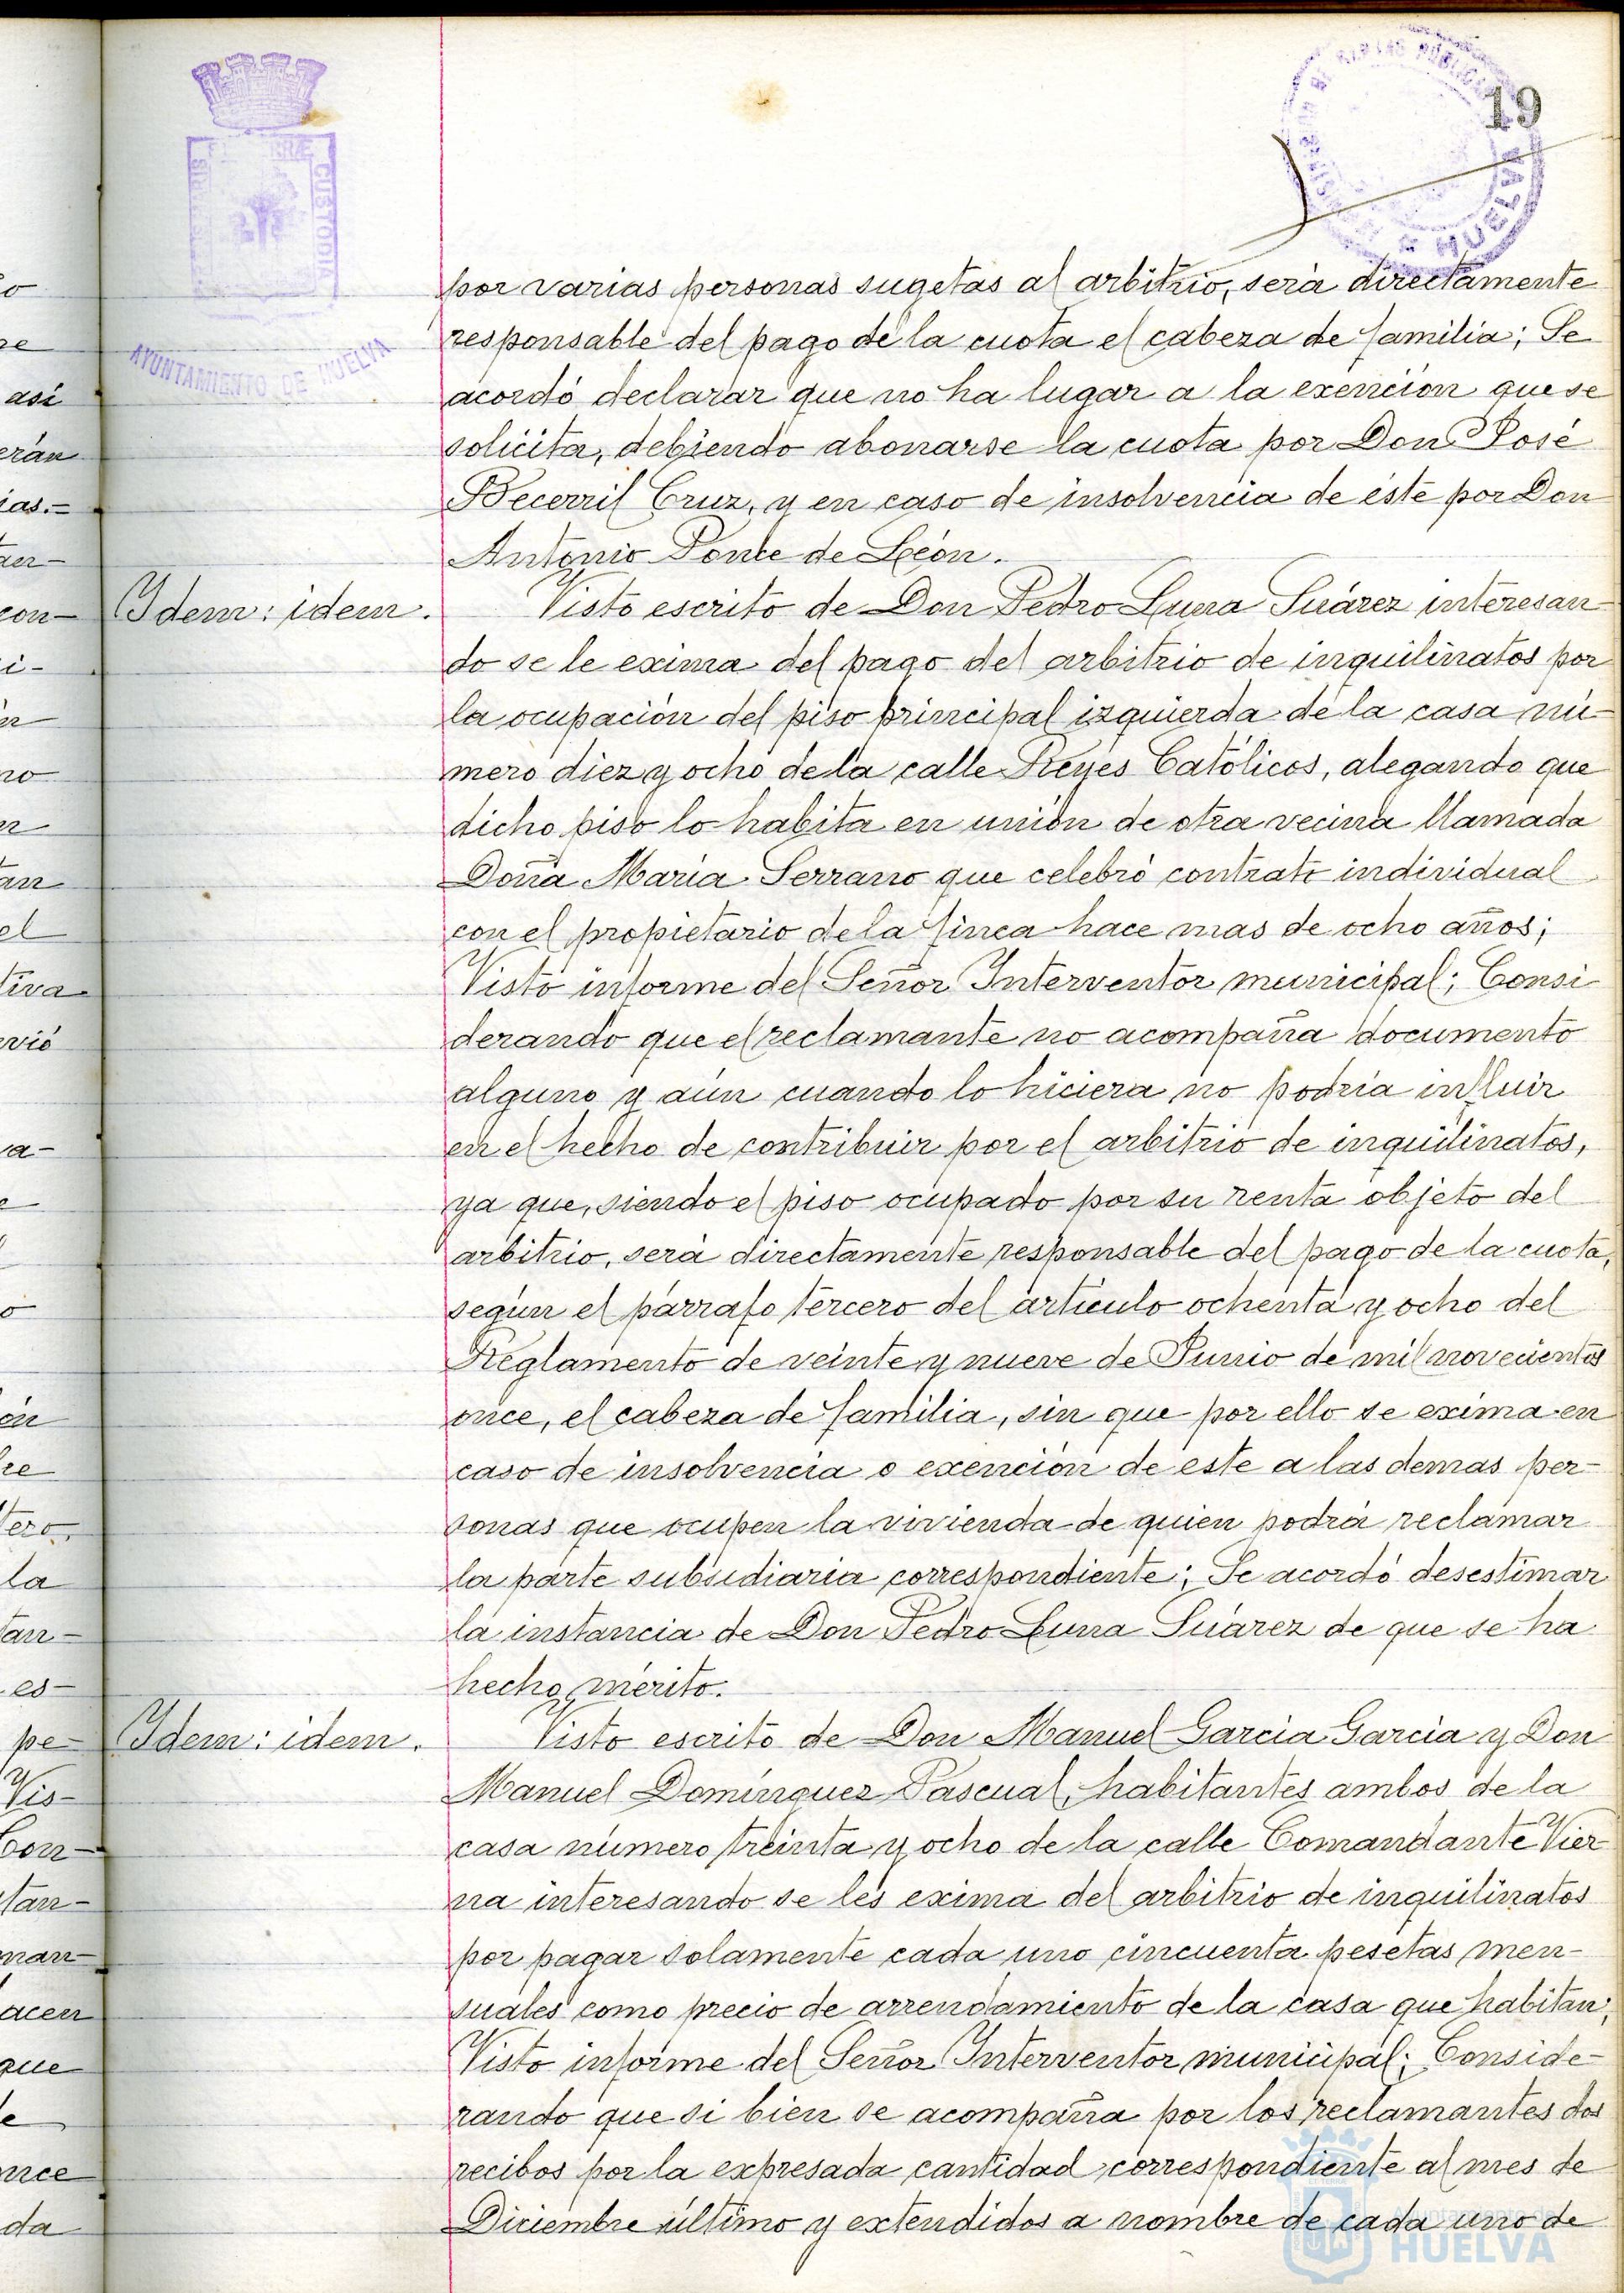 19
PORTUS MARIS ET TERRÆ CUSTODIA
AYUNTAMIENTO DE HUELVA
HUELVA
por varias personas sugetas al arbitrio, será directamente
responsable del pago de la cuota el cabeza de familia; Se
acordó declarar que no ha lugar a la exención que se
solicita, debiendo abonarse la cuota por Don José
Becerril Cruz, y en caso de insolvencia de éste por Don
Antonio Ponce de León.
Idem: idem. Visto escrito de Don Pedro Luna Suárez interesan-
do se le exima del pago del arbitrio de inquilinatos por
la ocupación del piso principal izquierda de la casa nú-
mero diez y ocho de la calle Reyes Católicos, alegando que
dicho piso lo habita en unión de otra vecina llamada
Doña María Serrano que celebró contrato individual
con el propietario de la finca hace mas de ocho años;
Visto informe del Señor Interventor municipal; Consi
derando que el reclamante no acompaña documento
alguno y aún cuando lo hiciera no podría influir
en el hecho de contribuir por el arbitrio de inquilinatos,
ya que, siendo el piso ocupado por su renta objeto del
arbitrio, será directamente responsable del pago de la cuota,
según el párrafo tercero del artículo ochenta y ocho del
Reglamento de veinte y nueve de Junio de mil novecientos
once, el cabeza de familia, sin que por ello se exima en
caso de insolvencia o exención de este a las demas per-
sonas que ocupen la vivienda de quien podrá reclamar
la parte subsidiaria correspondiente; Se acordó desestimar
la instancia de Don Pedro Luna Suárez de que se ha
hecho mérito.
Idem: idem. Visto escrito de Don Manuel Garcia Garcia y Don
Manuel Domínguez Pascual, habitantes ambos de la
casa número treinta y ocho de la calle Comandante Vier
na interesando se les exima del arbitrio de inquilinatos
por pagar solamente cada uno cincuenta pesetas men-
suales como precio de arrendamiento de la casa que habitan;
Visto informe del Señor Interventor municipal; Conside-
rando que si bien se acompaña por los reclamantes dos
recibos por la expresada cantidad correspondiente al mes de
Diciembre último y extendidos a nombre de cada uno de
Ayuntamiento de
HUELVA